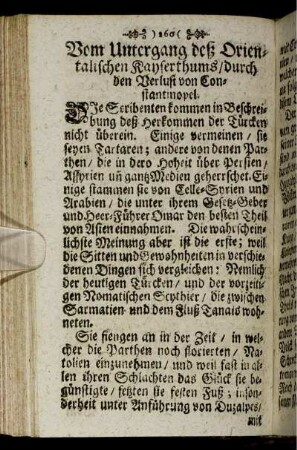 )260(
Vom Untergang deß Orien-
talischen Kayserthums/durch
den Verlust von Con-
stantinopel.
DIe Scribenten kommen in Beschrei-
bung deß Herkommen der Türcken
nicht überein. Einige vermeinen/ sie
seyen Tartaren; andere von denen Par-
then/ die in dero Hoheit über Persien/
Assyrien uñ gantz Medien geherrschet. Ei-
nige stammen sie von Celle-Syrien und
Arabien/ die unter ihrem Gesetz-Geber
und Heer-Führer Omar den besten Theil
von Asien einnahmen. Die wahrschein-
lichste Meinung aber ist die erste; weil
die Sitten und Gewohnheiten in verschie-
denen Dingen sich vergleichen: Nemlich
der heutigen Türcken/ und der vorzeiti-
gen Nomatischen Scythier/ die zwischen
Sarmatien und dem Fluß Tanais woh-
neten.
Sie fiengen an in der Zeit/ in wel-
cher die Parthen noch florierten/ Na-
tolien einzunehmen/ und weil fast in al-
len ihren Schlachten das Glück sie be-
günstigte/ setzten sie festen Fuß; inson-
derheit unter Anführung von Duzalpes/
mit